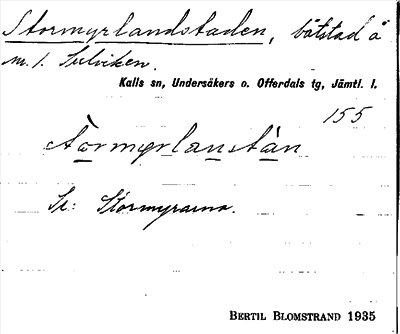 Stormyrlandstaden, båtstad å
m. l. Sulviken.
Kalls sn, Undersåkers o. Offerdals tg, Jämtl. l.
155
stòrmyrlanstán
Se: Stormyrarna.
BERTIL BLOMSTRAND 1935